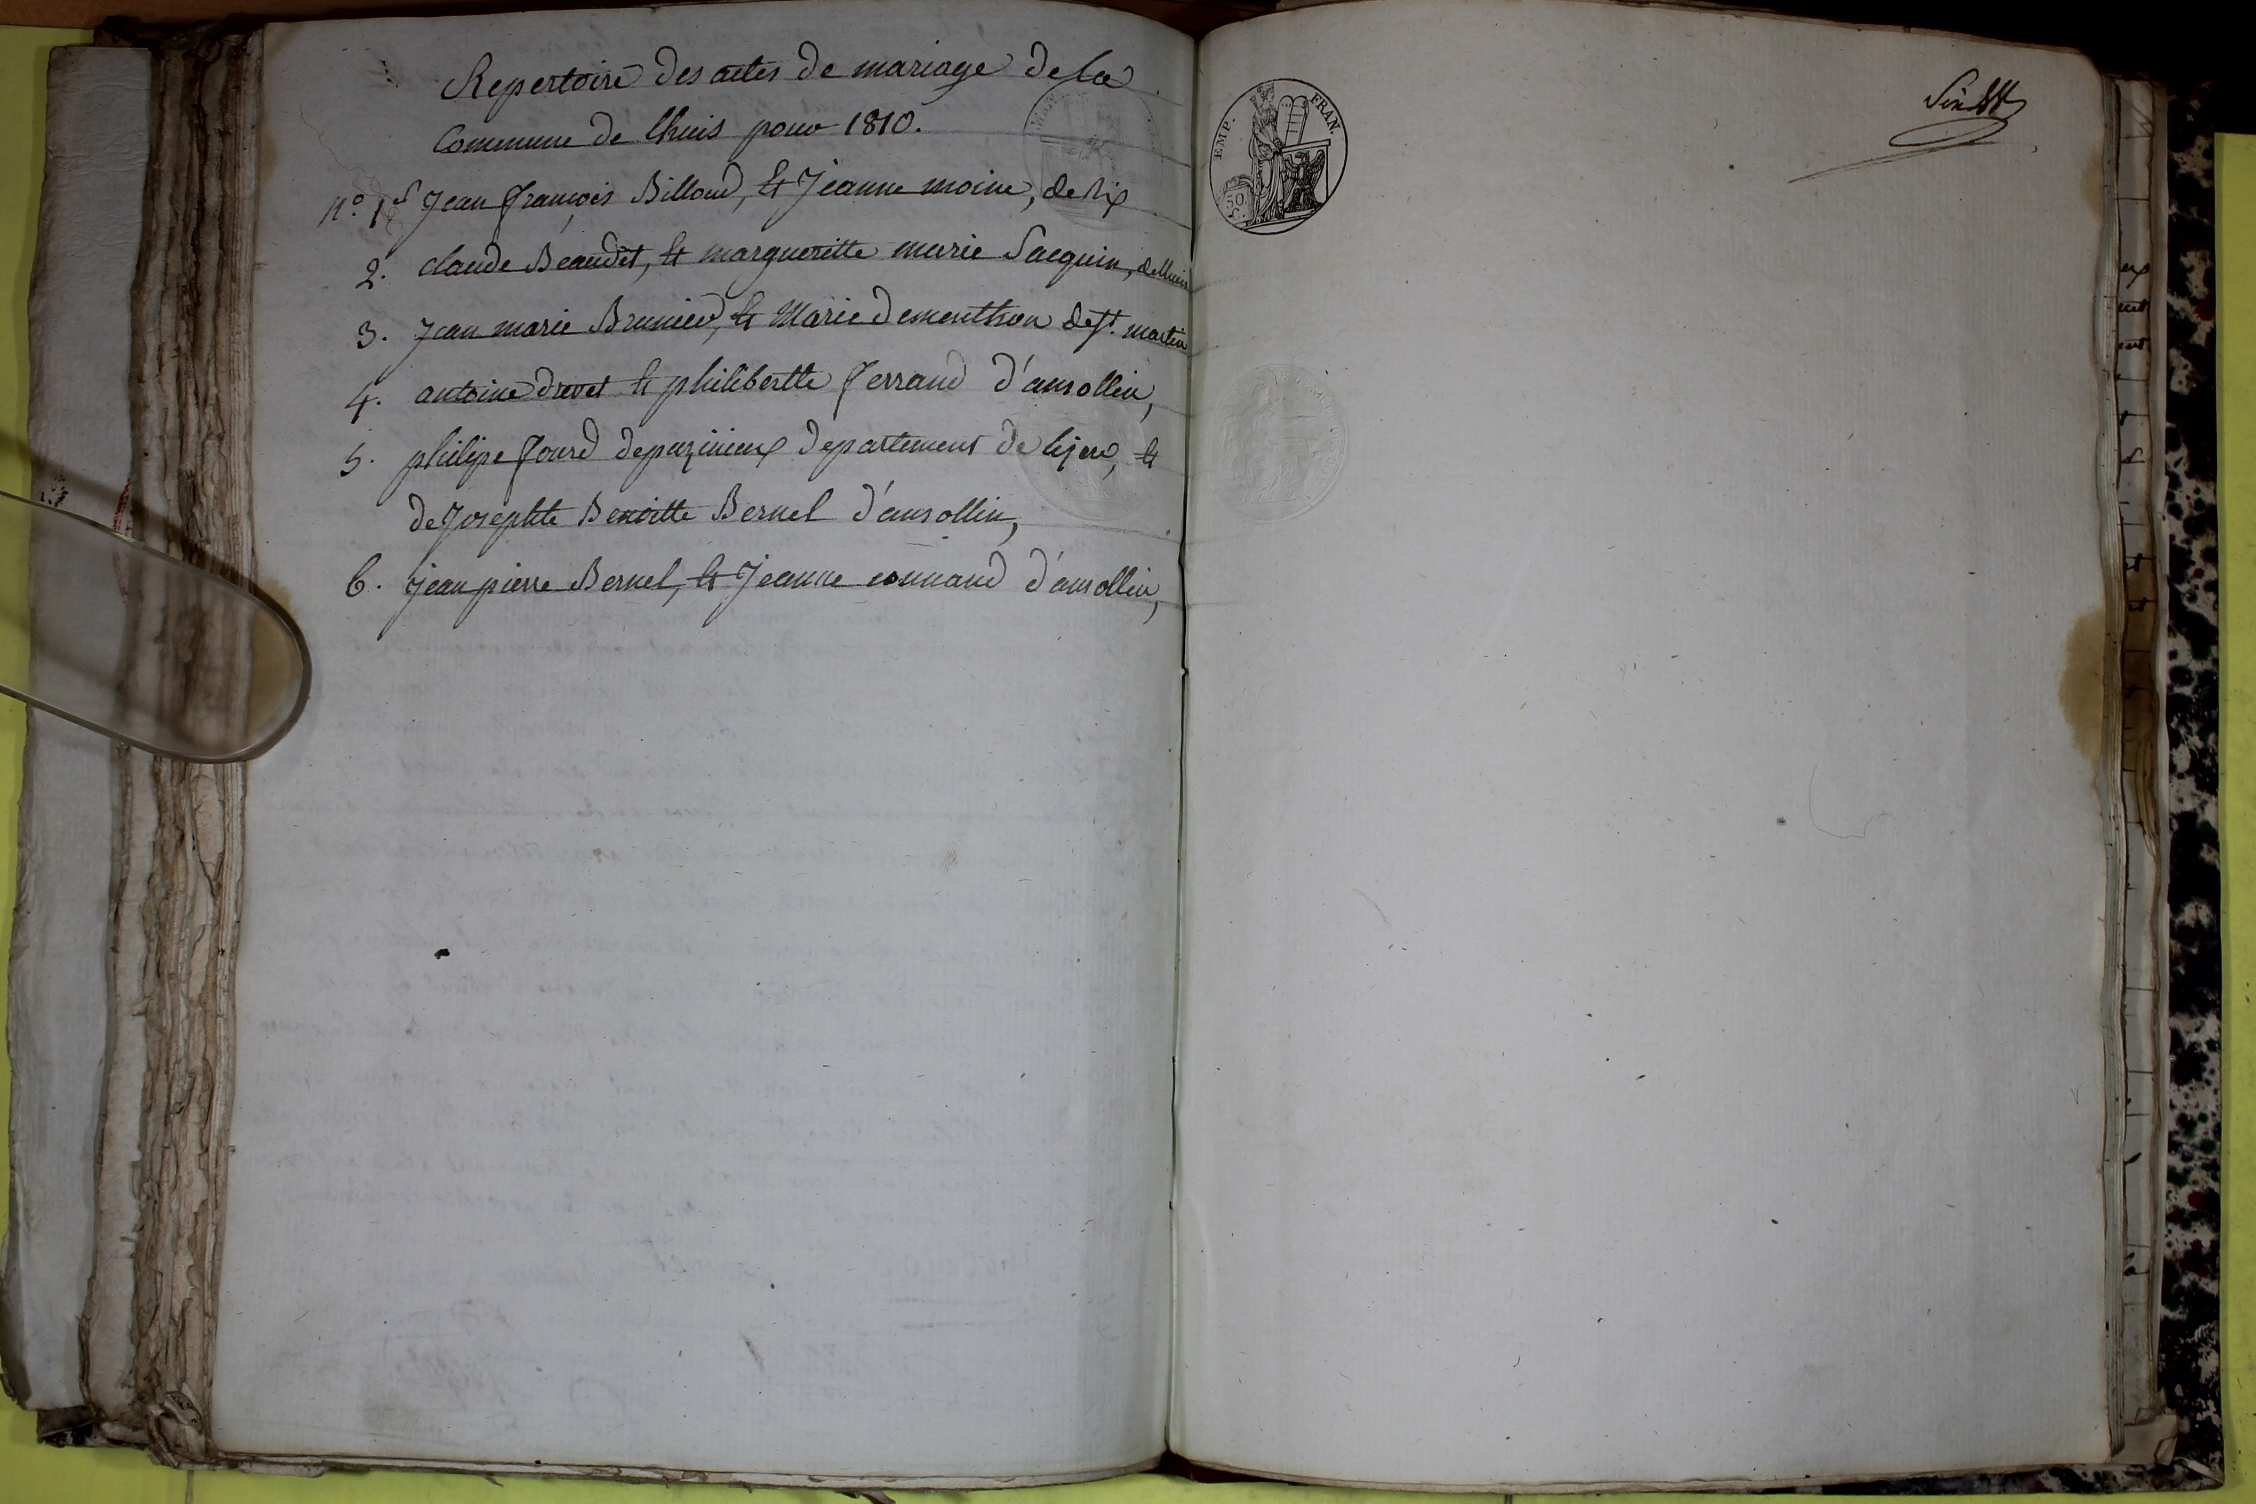 Repertoire des actes de mariage de la
Commune de lhuis pour 1810.
n.º 1er Jean françois Billoud, et Jeanne moine, de Rix
2. claude Beaudet, et margueritte marie Sacquin, de lhuis
3. Jean marie Brunied, et Marie dementhon de st. martin
4. antoine drevet et philibertte ferrand d'ansollin,
5. philipe fourd depuzinieux departement de lizere, et
de Josephte Benoitte Bernel d'ansollin,
6. jean pierre Bernel, et Jeanne connand d'ansollin,
EMP. FRAN.
50 c.